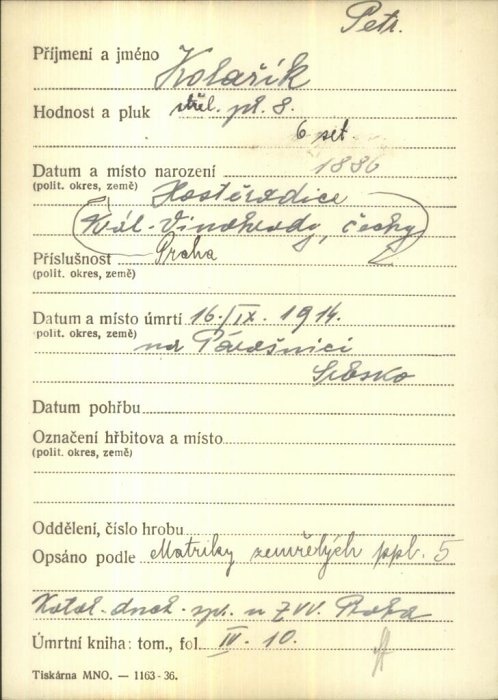 Petr.
Příjmení a jméno Kolařík
Hodnost a pluk střel. pl. 8.
6 set.
Datum a místo narození 1886
(polit. okres, země) Hostěradice
Král. Vinohrady, Čechy
Příslušnost Praha
(polit. okres, země)
Datum a místo úmrtí 16./IX. 1914.
polit. okres, země) na Parašnici
Srbsko
Datum pohřbu
Označení hřbitova a místo
(polit. okres, země)
Oddělení, číslo hrobu
Opsáno podle Matriky zemřelých ppl. 5
Katol. duch. sp. u ZVV. Praha
Úmrtní kniha: tom., fol. IV. 10.
Tiskárna MNO. — 1163-36.